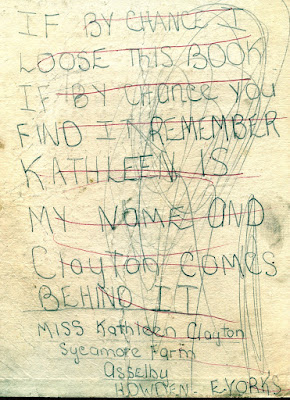 IF BY CHANCE I
LOOSE THIS BOOK
IF BY CHANCE YOU
FIND IT REMEMBER
KATHLEEN IS
MY NAME AND
Clayton COMES
BEHIND IT
MISS Kathleen Clayton
Sycamore Farm
Asselby
HOWDEN. E.YORKS